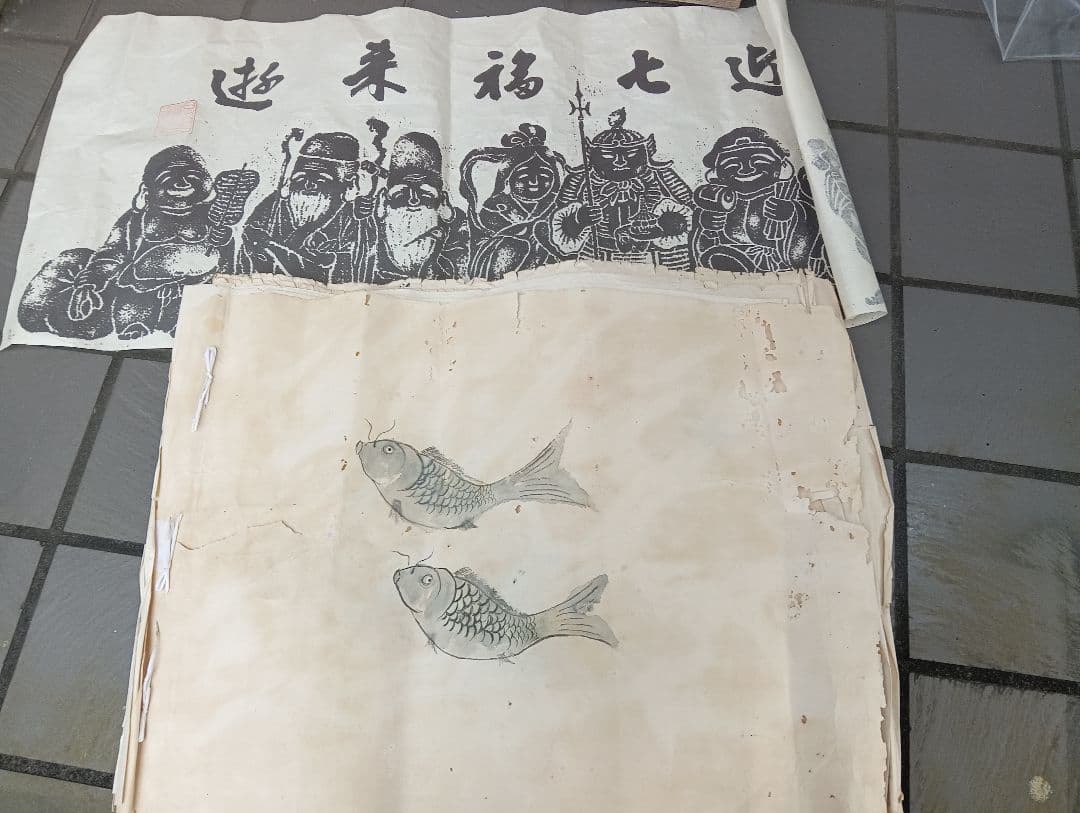 迎七福来遊